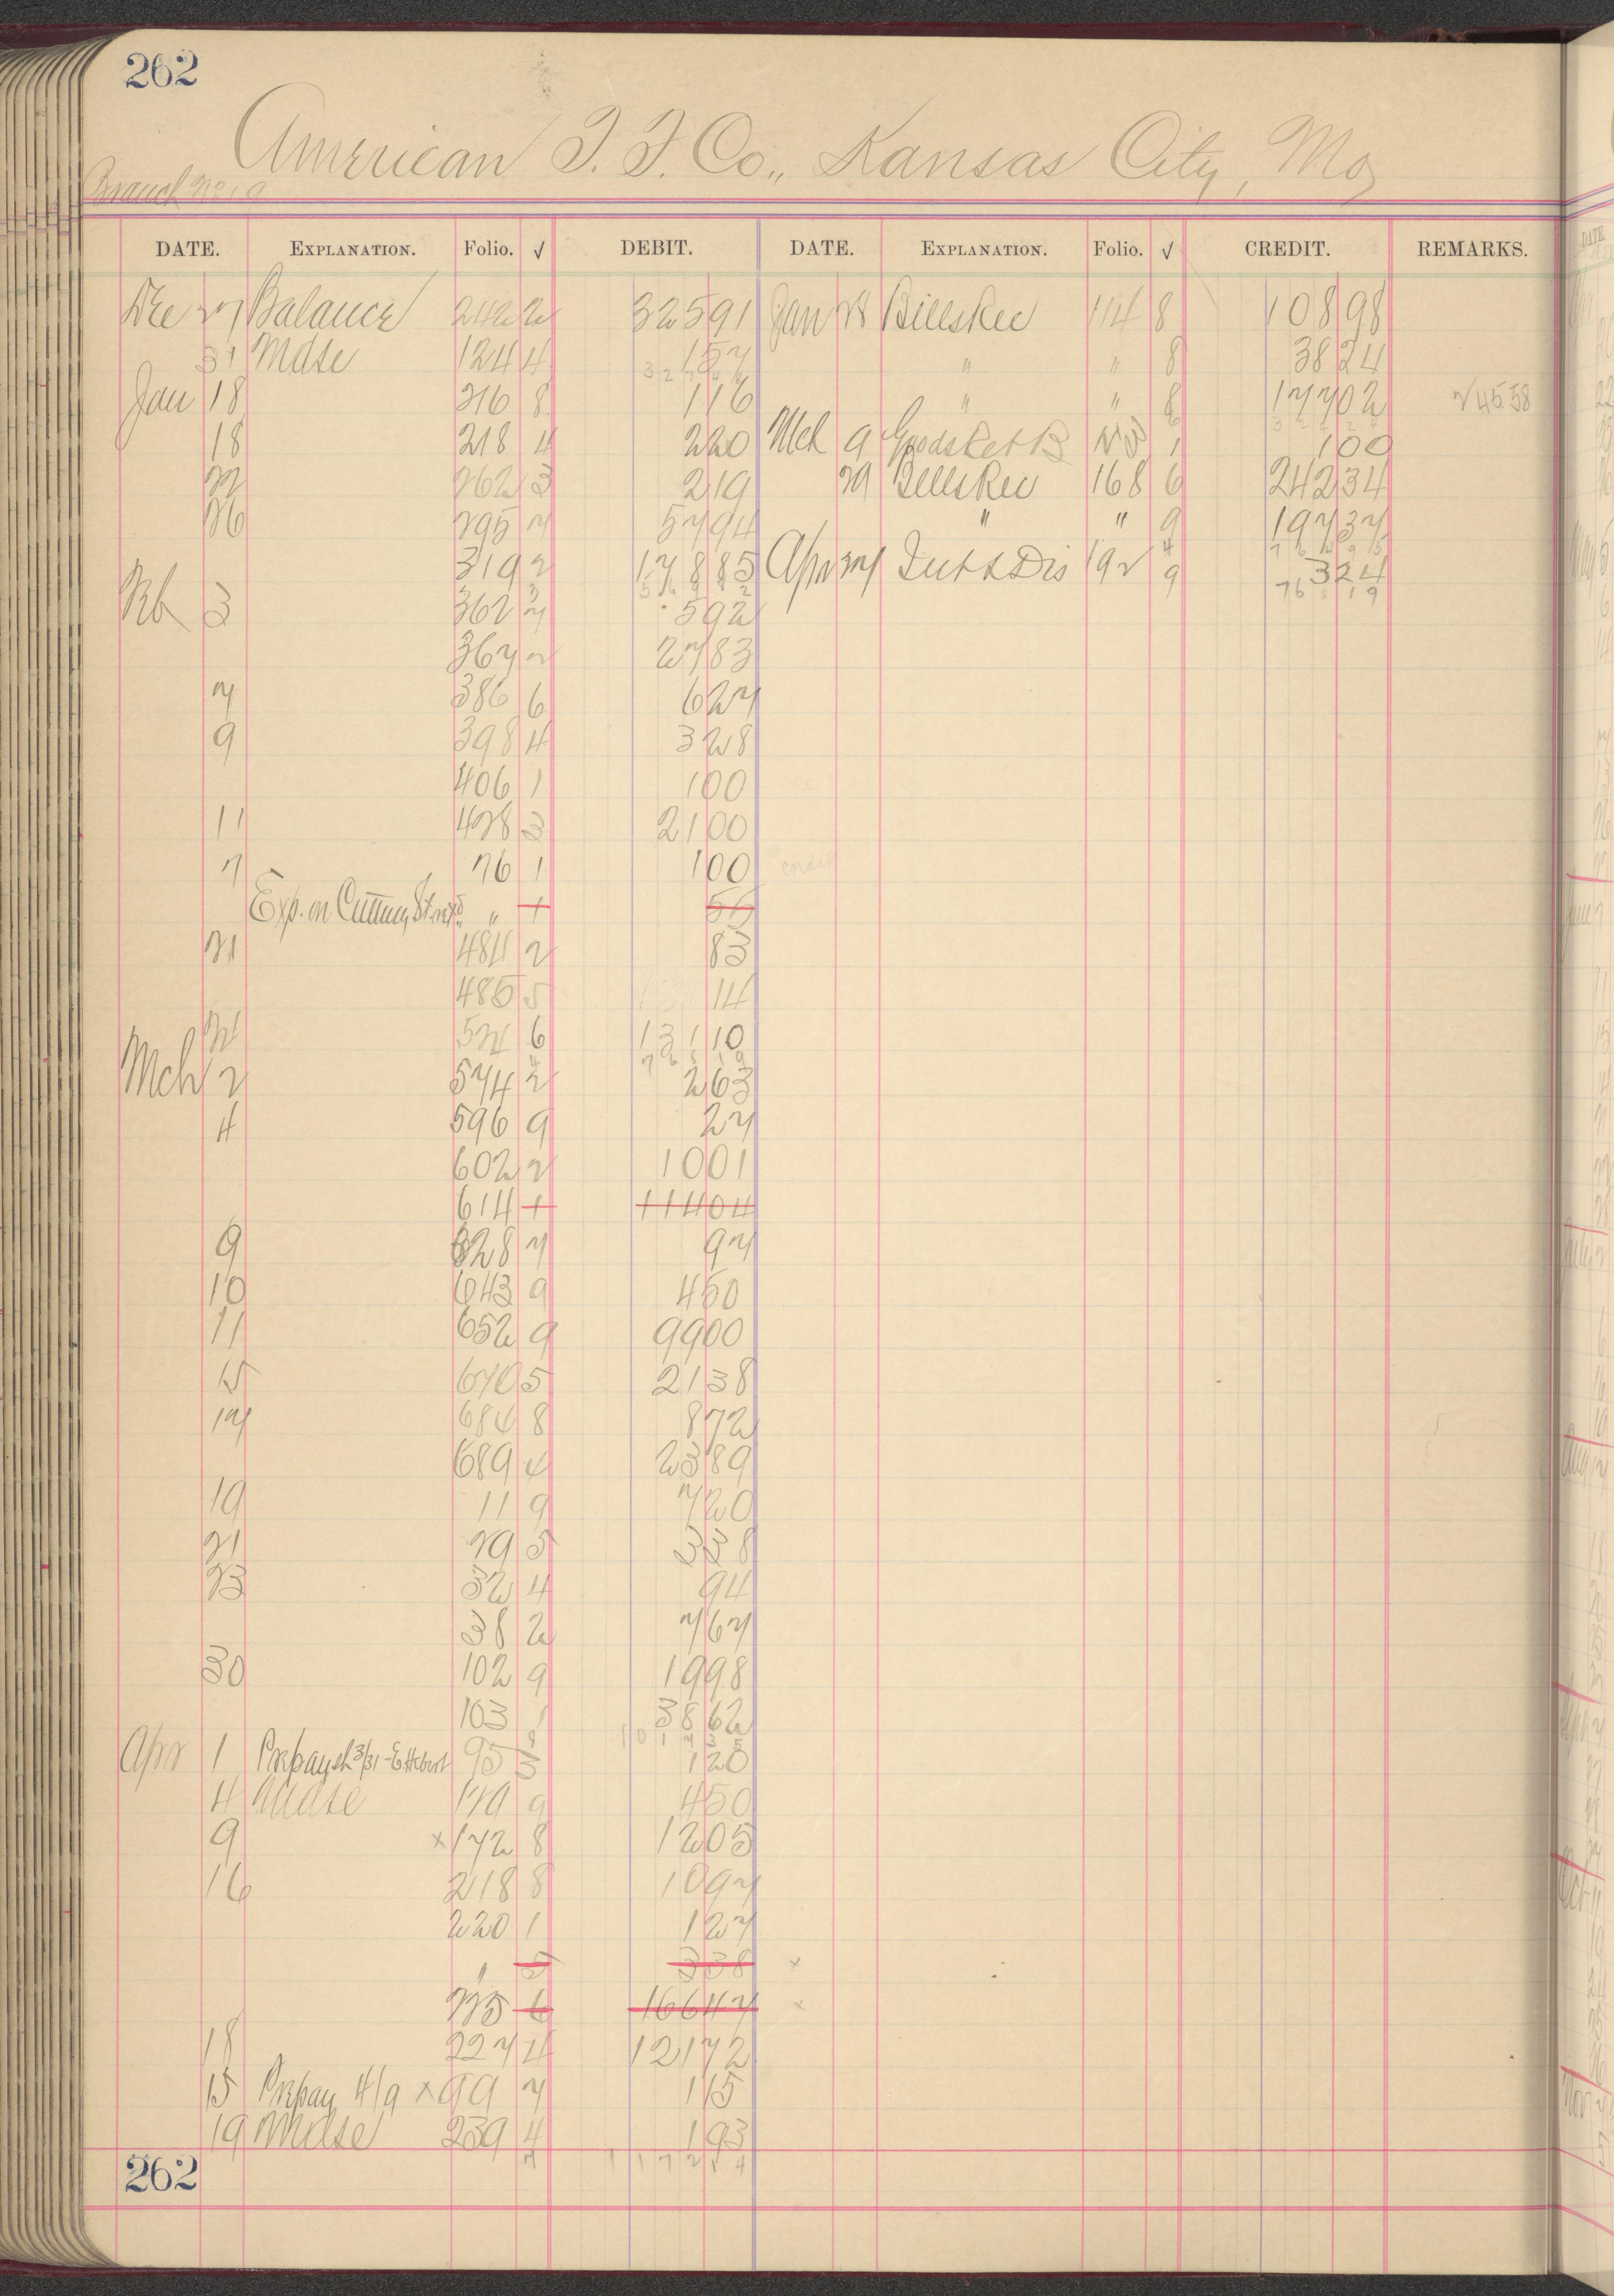 262
American T. F. Co., Kansas City, Mo
Branch No 19
DATE. EXPLANATION. Folio. √ DEBIT. DATE. EXPLANATION. Folio. √ CREDIT. REMARKS.
Dec 27 Balance 242 2 325 91 Jan 28 Bills Rec 114 8 108 98
31 Mdse 124 4 1 57 " " 8 38 24
Jan 18 216 8 1 16 " " 8 177 02 √ 45 58
18 218 4 2 20 Mch 9 Goods Ret B 1 1 00
22 262 3 2 19 29 Bills Rec 168 6 242 34
26 295 7 57 94 " " 9 197 37
319 2 178 85 Apr 27 Int & Dis 192 9 3 24
Feb 3 362 7 5 92
367 2 27 83
7 386 6 6 27
9 398 4 3 28
406 1 1 00
11 428 3 21 00
7 76 1 1 00
Exp. on Cutting " 1
21 484 2 83
485 5 14
6 131 10
Mch 2 574 2 2 63
4 596 9 27
602 2 10 01
614 1 114 04
9 628 7 97
10 643 9 4 50
11 652 9 99 00
15 670 5 21 38
17 684 8 8 72
689 4 23 89
19 11 9 7 20
21 29 5 3 38
23 32 4 94
38 2 7 67
30 102 9 19 98
103 1 38 62
Apr 1 Prepay 3/31 95 3 1 20
4 Mdse 129 9 4 50
9 x 172 8 12 05
16 218 8 10 97
220 1 1 27
" 5 3 38 x
225 6 166 47 x
18 227 4 121 72
15 Prepay 4/9 x 99 7 1 15
19 Mdse 239 4 1 93
1 172 54
262